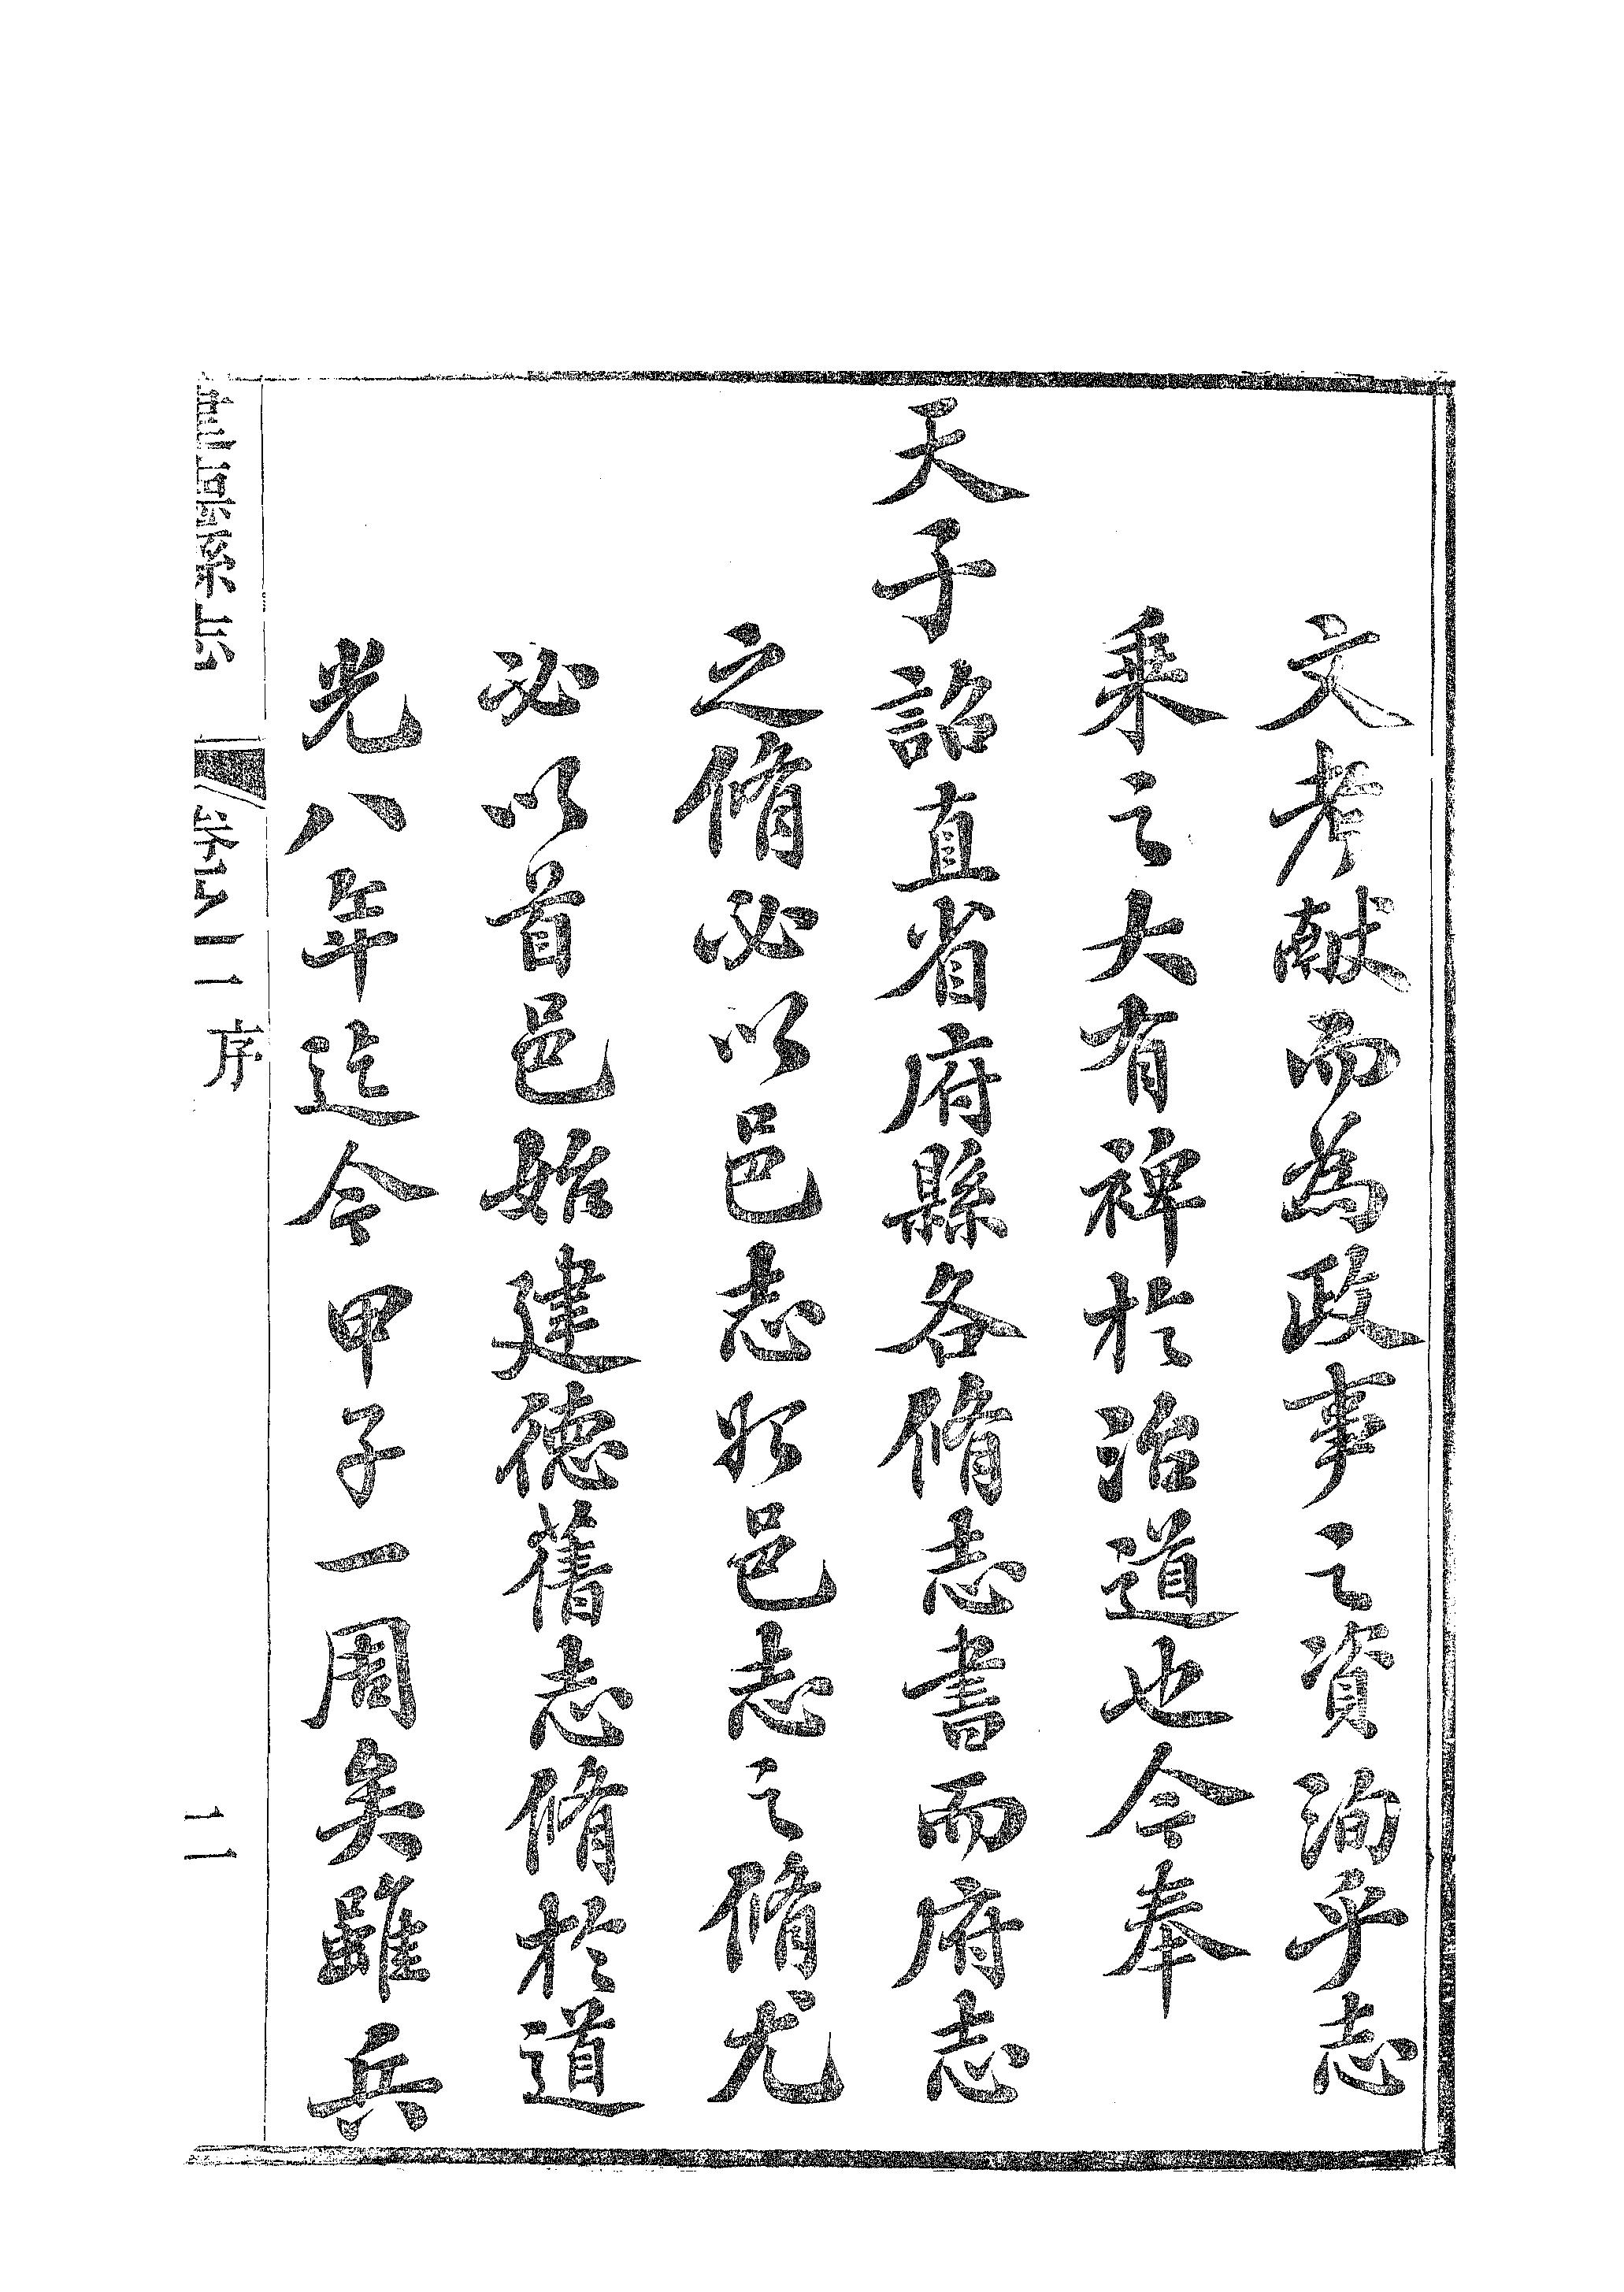 文考献而為政事之資洵乎志
乘之大有裨於治道也今奉
天子詔直省府縣各脩志書而府志
之脩必以邑志始邑志之脩尤
必以首邑始建德舊志脩於道
光八年迄今甲子一周矣雖兵
縣志
序
二